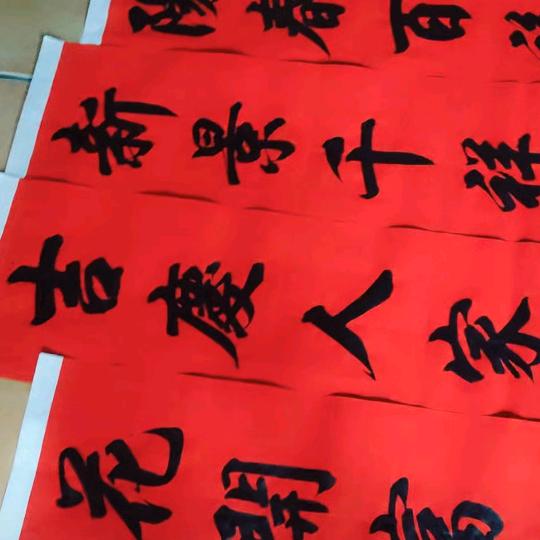 陽春百
新景千祥
吉慶人家
花開富